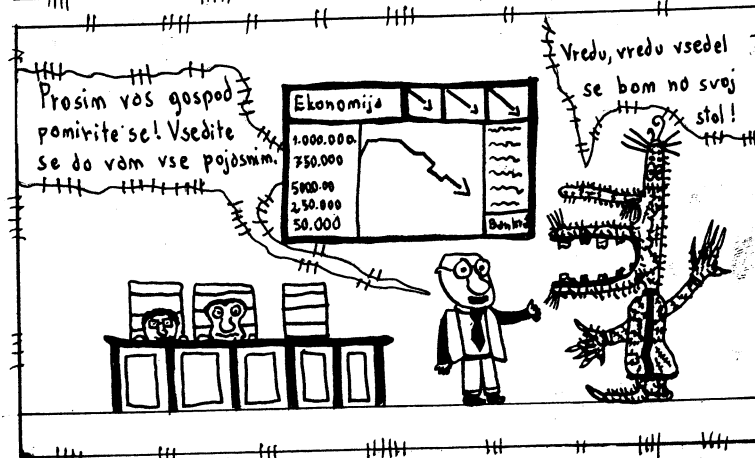 Prosim vas gospod
pomirite se! Vsedite
se da vam vse pojasnim.
Ekonomija
1.000.000.
750.000
5000.00
250.000
50.000
Vredu, vredu vsedel
se bom no svoj
stol!